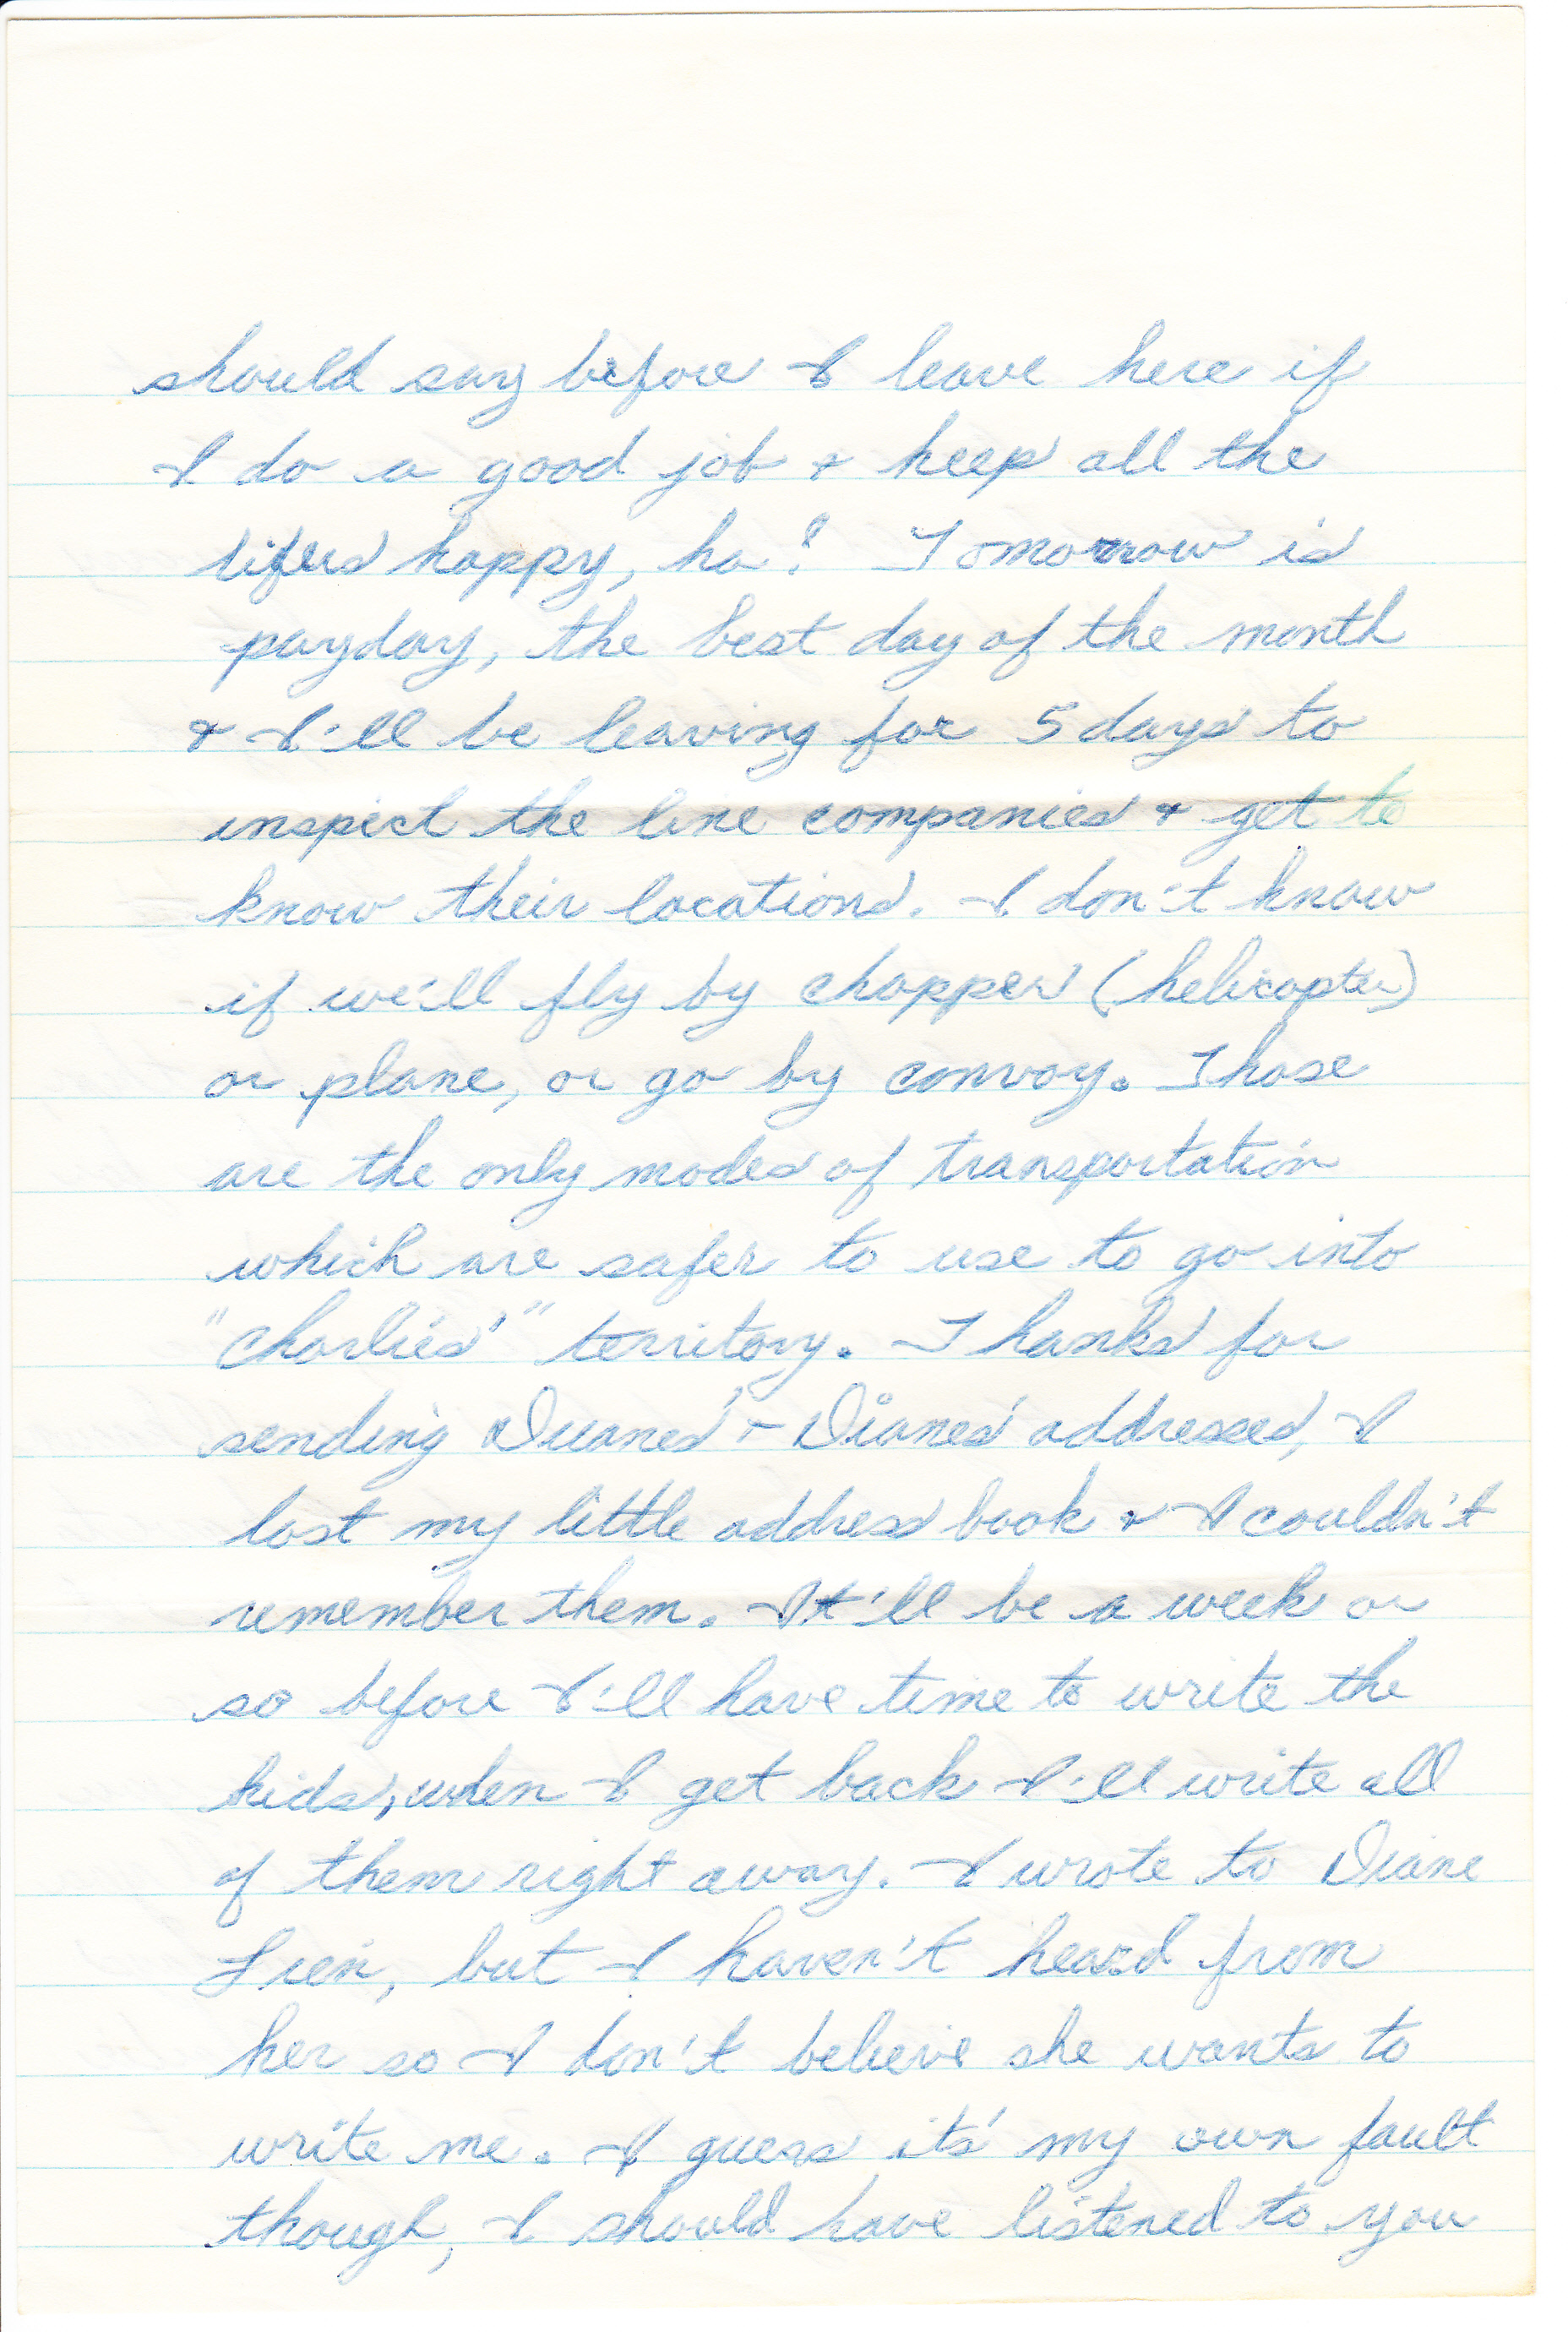 should say before I leave here if
I do a good job & keep all the
lifers happy, ha! Tomorrow is
payday, the best day of the month
& I'll be leaving for 5 days to
inspect the line companies & get to
know their locations. I don't know
if we'll fly by chopper (helicopter)
or plane, or go by convoy. Those
are the only modes of transportation
which are safer to use to go into
"Charlies'" territory. Thanks for
sending Duanes' & Dianes' addresses, I
lost my little address book & I couldn't
remember them. It'll be a week or
so before I'll have time to write the
kids, when I get back I'll write all
of them right away. I wrote to Diane
Lien, but I haven't heard from
her so I don't believe she wants to
write me. I guess its' my own fault
though, I should have listened to you